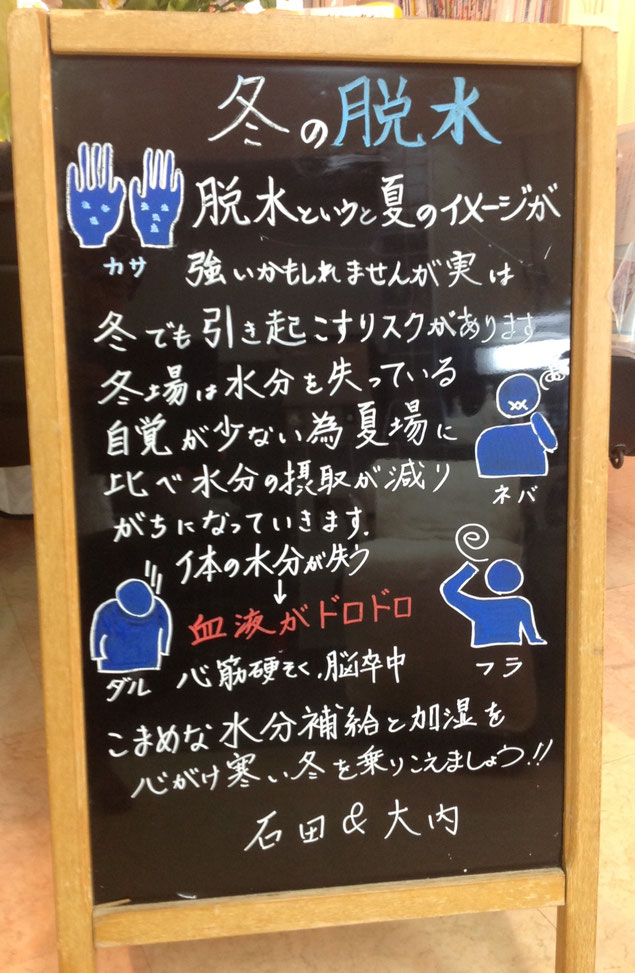 冬の脱水
脱水というと夏のイメージが
カサ
強いかもしれませんが実は
冬でも引き起こすリスクがあります
冬場は水分を失っている
自覚が少ない為夏場に
比べ水分の摂取が減り
ネバ
がちになっていきます。
体の水分が失う
↓
血液がドロドロ
ダル
心筋硬そく、脳卒中
フラ
こまめな水分補給と加湿を
心がけ寒い冬を乗りこえましょう!!
石田&大内